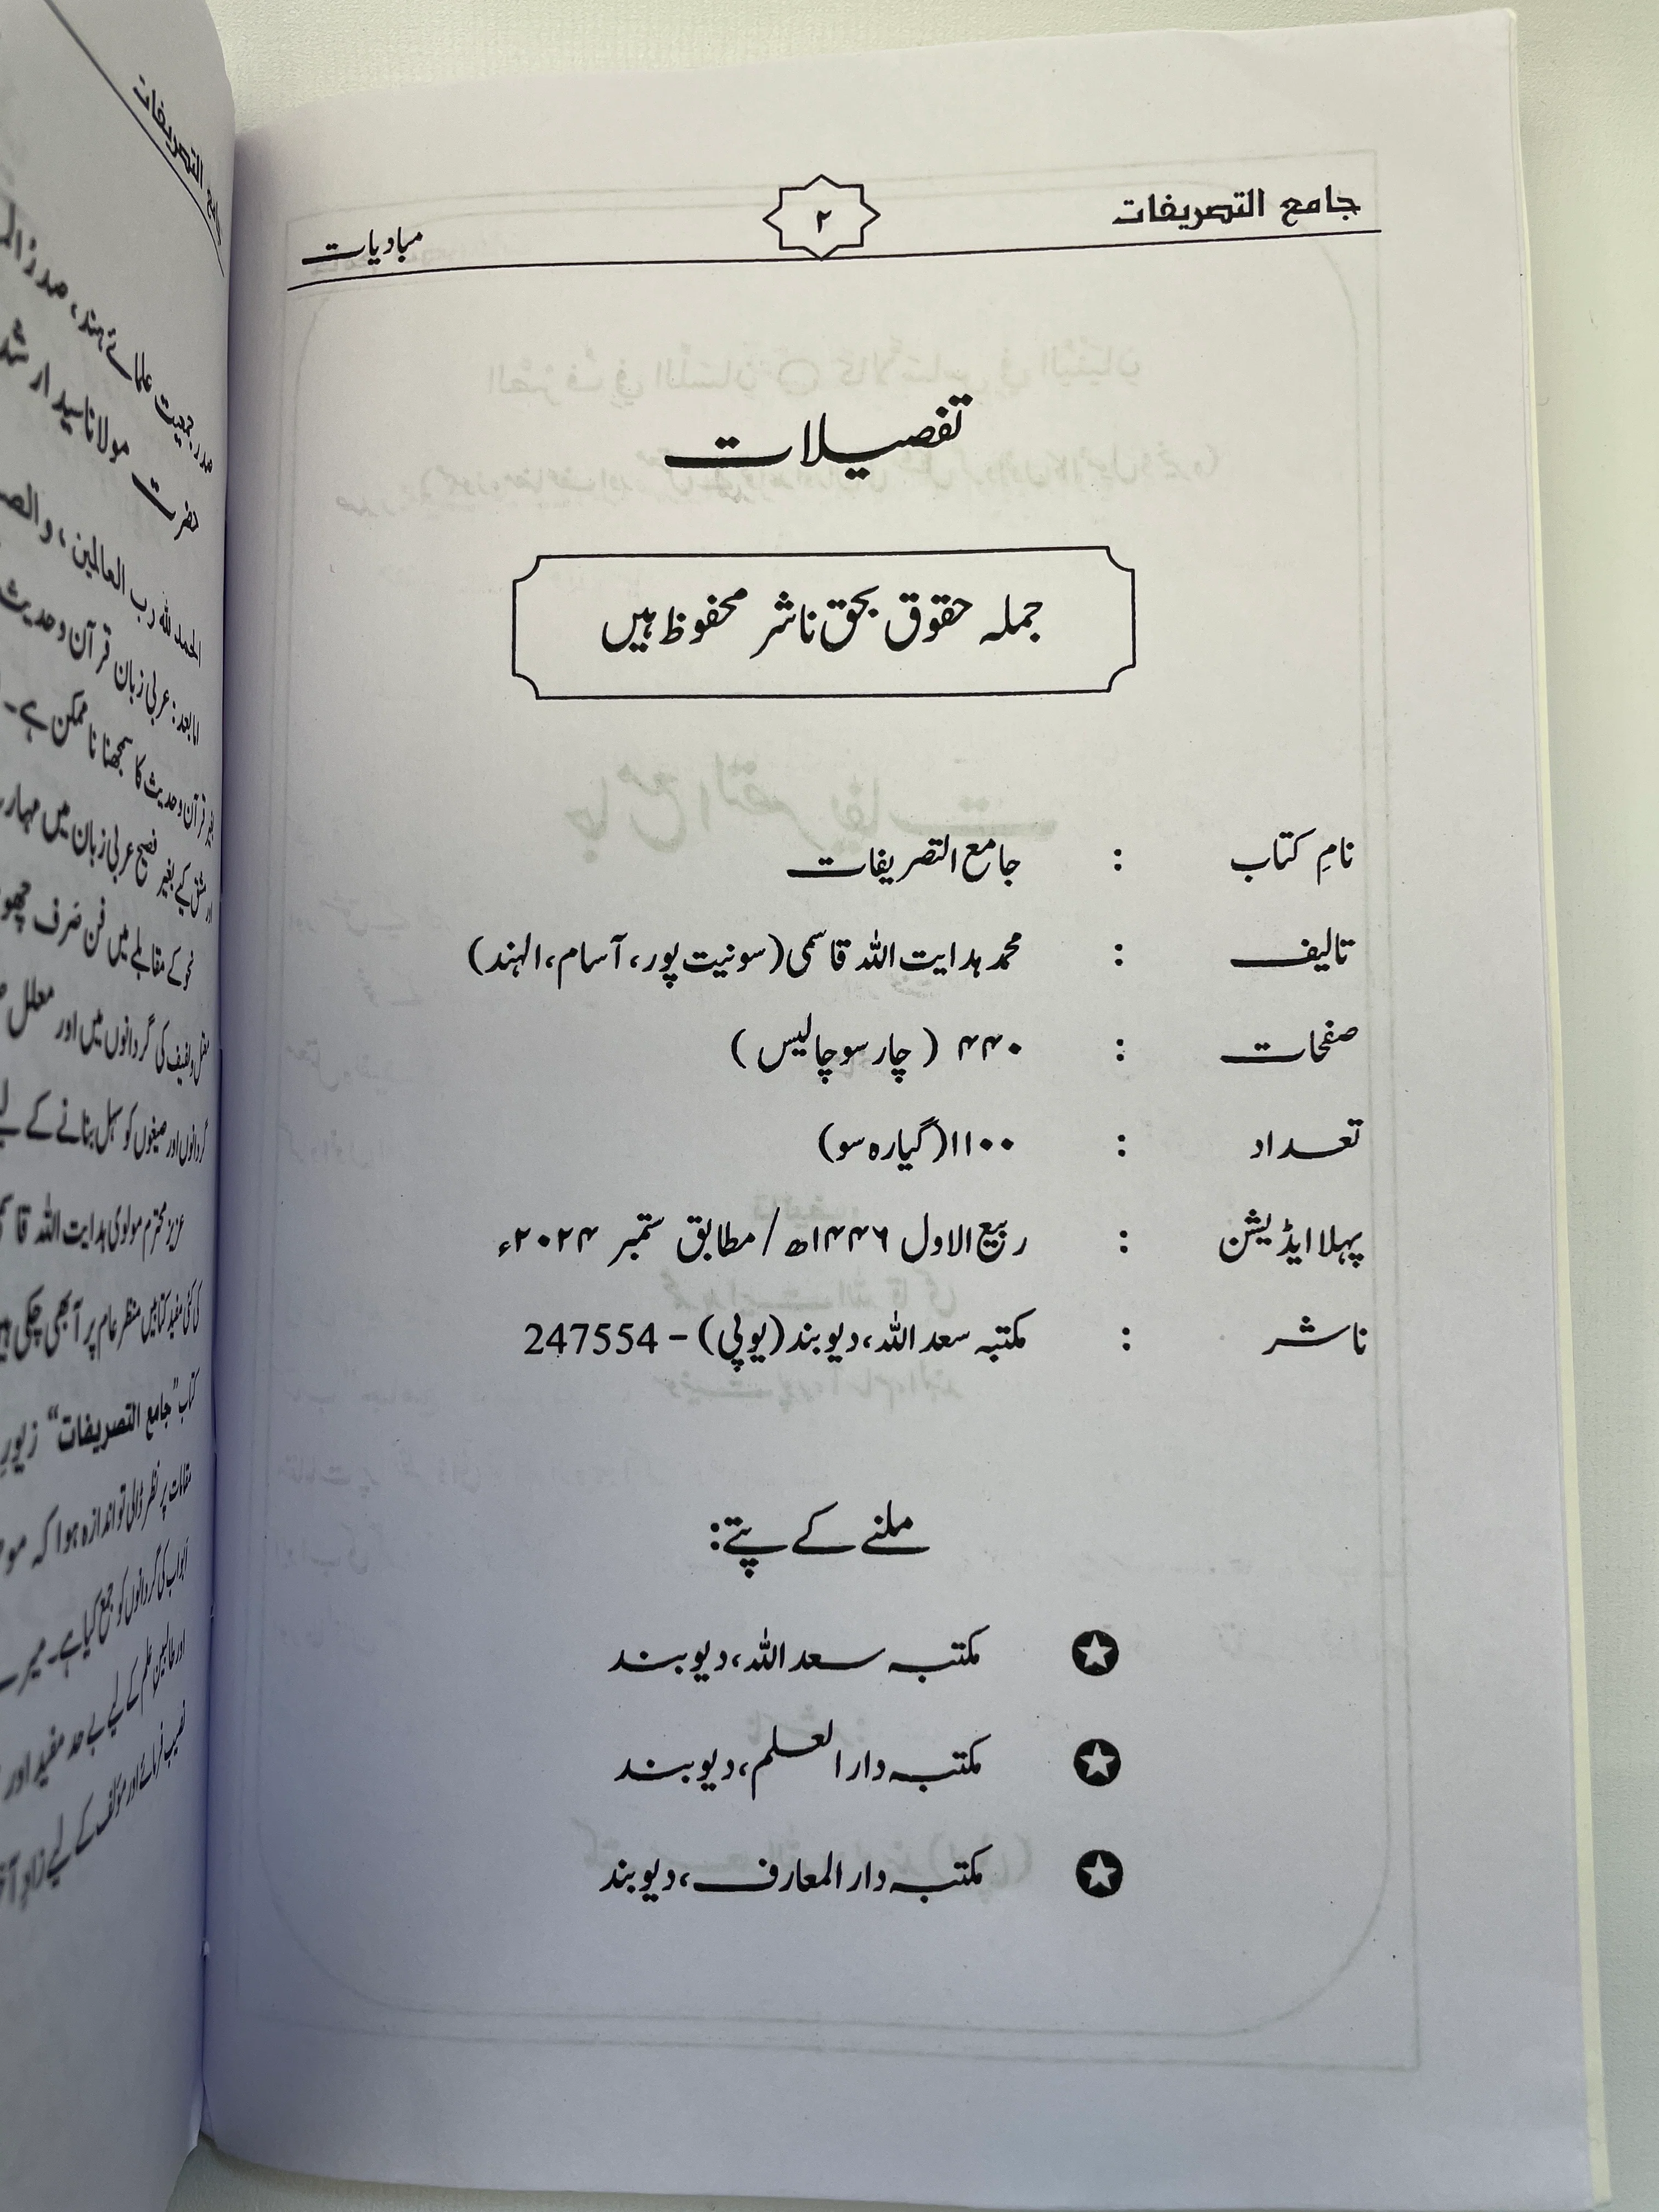 جامع التصریفات
۲
مبادیات
تفصیلات
جملہ حقوق بحق ناشر محفوظ ہیں
نامِ کتاب : جامع التصریفات
تالیف : محمد ہدایت اللہ قاسمی (سونیت پور، آسام، الہند)
صفحات : ۴۴۰ (چار سو چالیس)
تعداد : ۱۱۰۰ (گیارہ سو)
پہلا ایڈیشن : ربیع الاول ۱۴۴۶ھ / مطابق ستمبر ۲۰۲۴ء
ناشر : مکتبہ سعد اللہ، دیوبند (یوپی) – 247554
ملنے کے پتے:
مکتبہ سعد اللہ، دیوبند
مکتبہ دار العلم، دیوبند
مکتبہ دار المعارف، دیوبند
جامع التصریفات
صدر جمعیت علمائے ہند، صدر
حضرت مولانا سید ارشد
الحمد للہ رب العالمین، و
اما بعد: عربی زبان قرآن وحدیث
قرآن وحدیث کا سمجھنا ناممکن ہے۔
مشق کے بغیر فصیح عربی زبان میں
نحو کے مقابلے میں فن صَرف
کی گردانوں میں اور معلل
گردانوں اور صیغوں کو سہل بنانے کے
عزیز محترم مولوی ہدایت اللہ
کی کئی مفید کتابیں منظر عام پر آ بھی چکی
کتاب "جامع التصریفات" زیور
مقامات پر نظر ڈالی تو اندازہ ہوا کہ
ابواب کی گردانوں کو جمع کیا ہے۔ میرے
اور طالبین علم کے لیے بے حد مفید اور
نصیب فرمائے اور مؤلف کے لیے زادِ